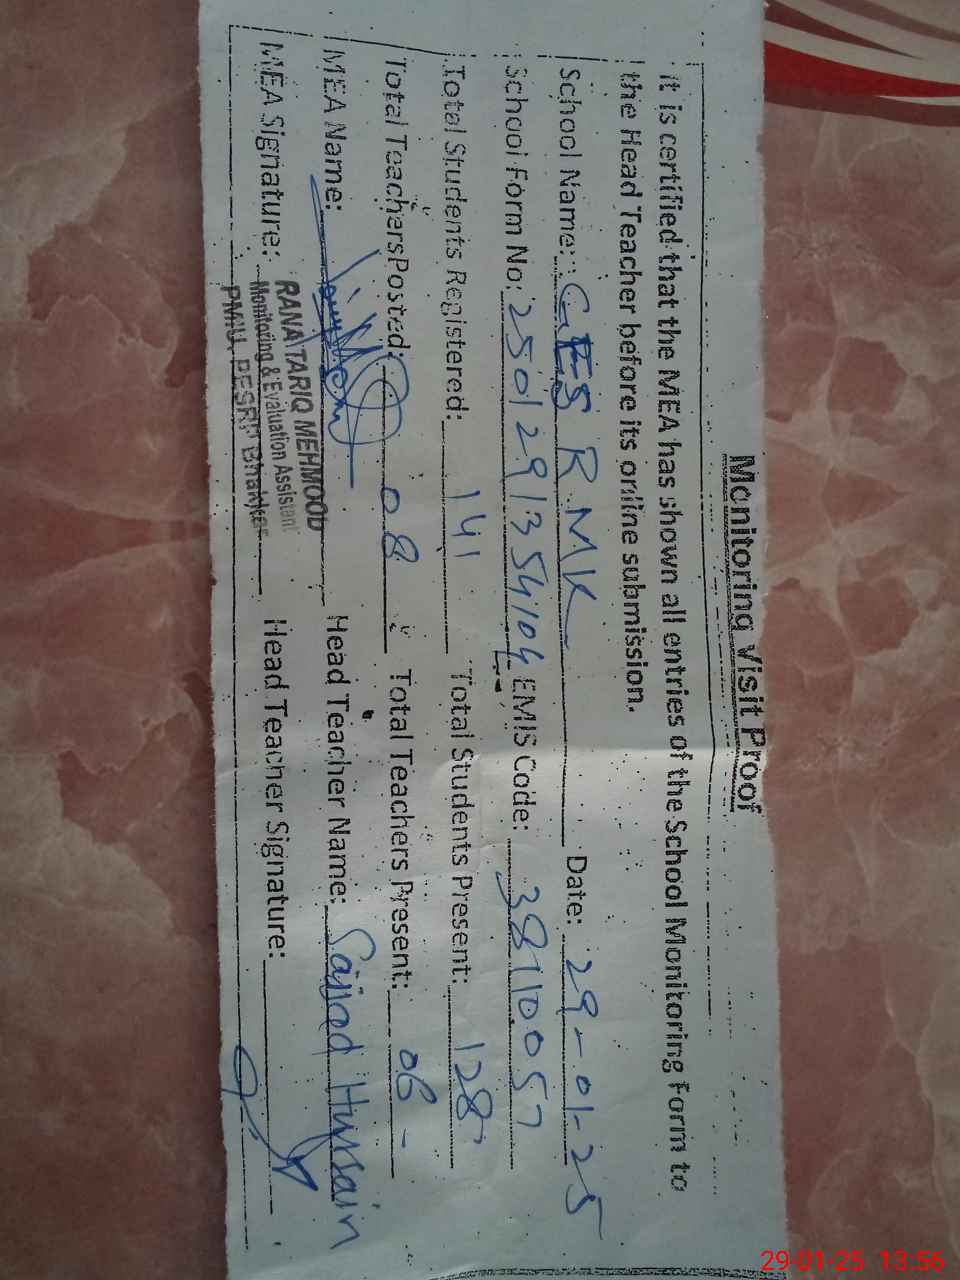 Monitoring Visit Proof
It is certified that the MEA has shown all entries of the School Monitoring Form to
the Head Teacher before its online submission.
School Name: GES RMK Date: 29-01-25
School Form No: 250129135410 EMIS Code: 38110057
Total Students Registered: 141 Total Students Present: 128
Total Teachers Posted: 08 Total Teachers Present: 06-
MEA Name: Head Teacher Name: Sajjad Hussain
RANA TARIQ MEHMOOD
MEA Signature: Head Teacher Signature:
Monitoring & Evaluation Assistant
PMIU, PESRP Bhakker
29-01-25 13:56